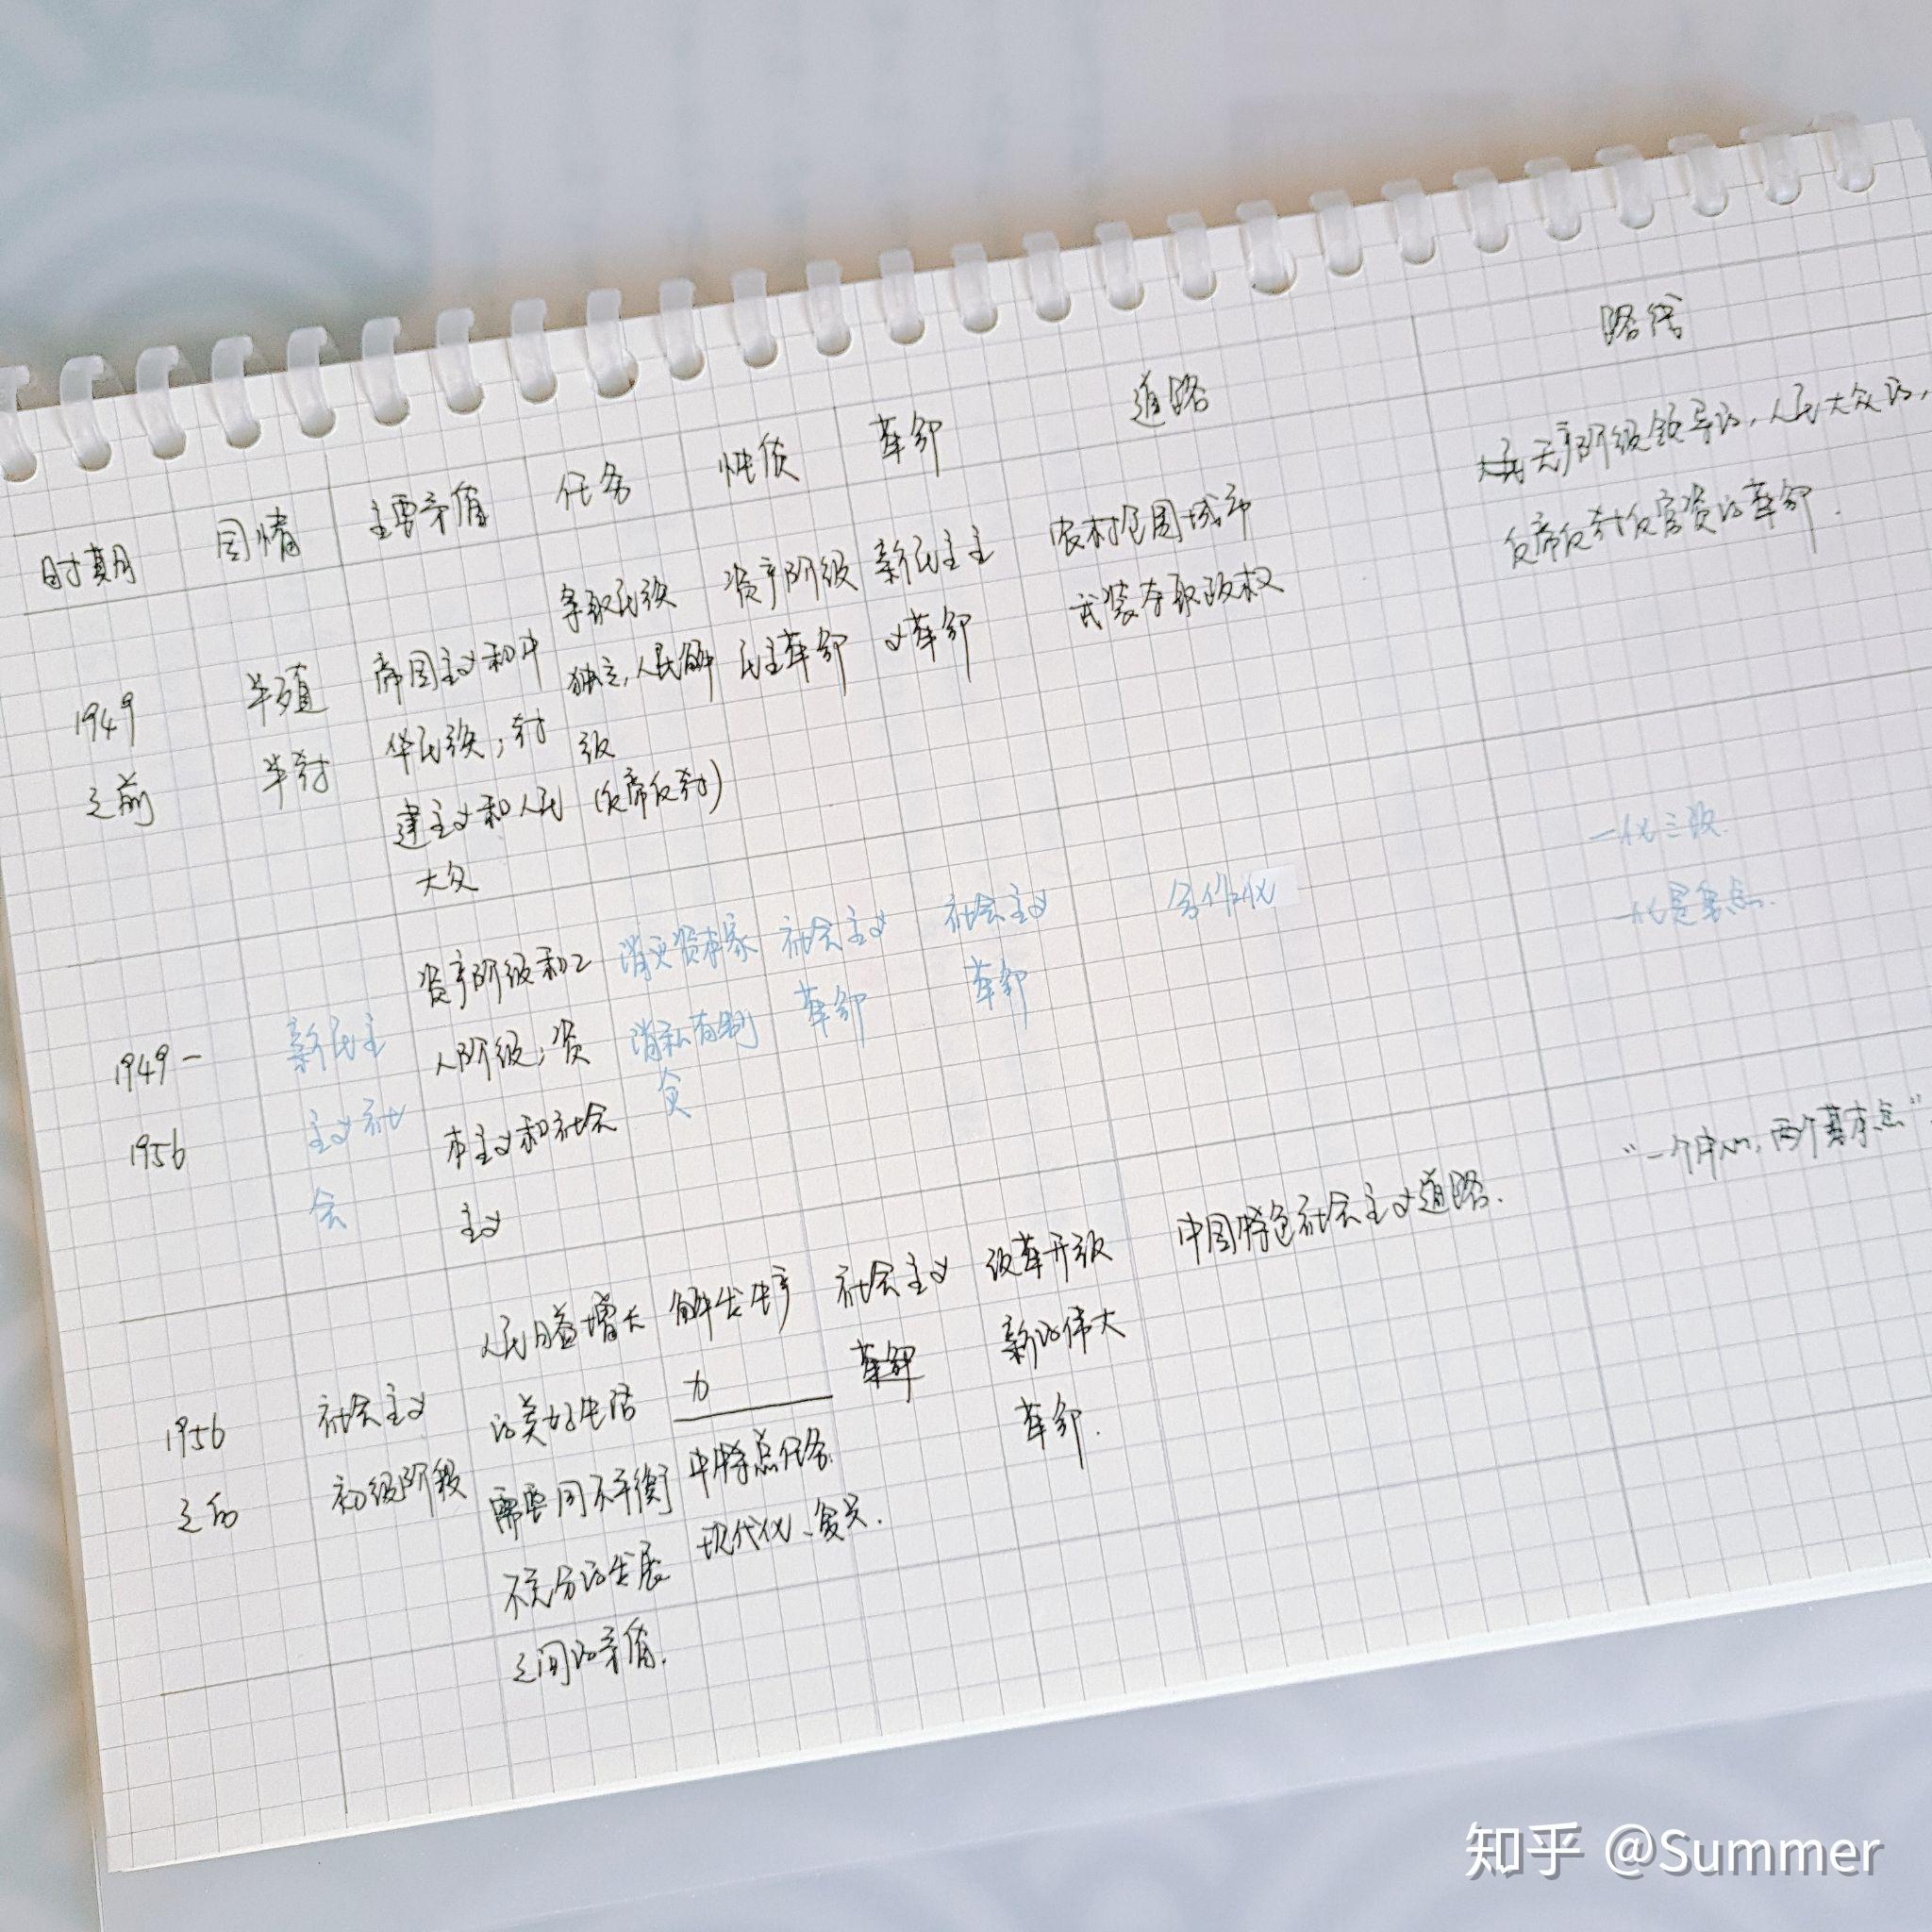 时期 国情 主要矛盾 任务 性质 革命 道路 路线
1949
之前
半殖
半封
帝国主义和中
华民族；封
建主义和人民
大众
争取民族
独立，人民解
级
(反帝反封)
资产阶级
民主革命
新民主主
义革命
农村包围城市
武装夺取政权
无产阶级领导的，人民大众的，
反帝反封反官资的革命．
1949－
1956
新民主
主义社
会
资产阶级和工
人阶级；资
本主义和社会
主义
消灭资本家
消私有制
贫
社会主义
革命
社会主义
革命
合作化
一化三改．
一化是重点．
1956
之后
社会主义
初级阶段
人民日益增长
的美好生活
需要同不平衡
不充分的发展
之间的矛盾．
解发生产
力
中特点任务．
现代化、复兴．
社会主义
革命
改革开放
新的伟大
革命．
中国特色社会主义道路．
“一个中心，两个基本点”
知乎 @Summer